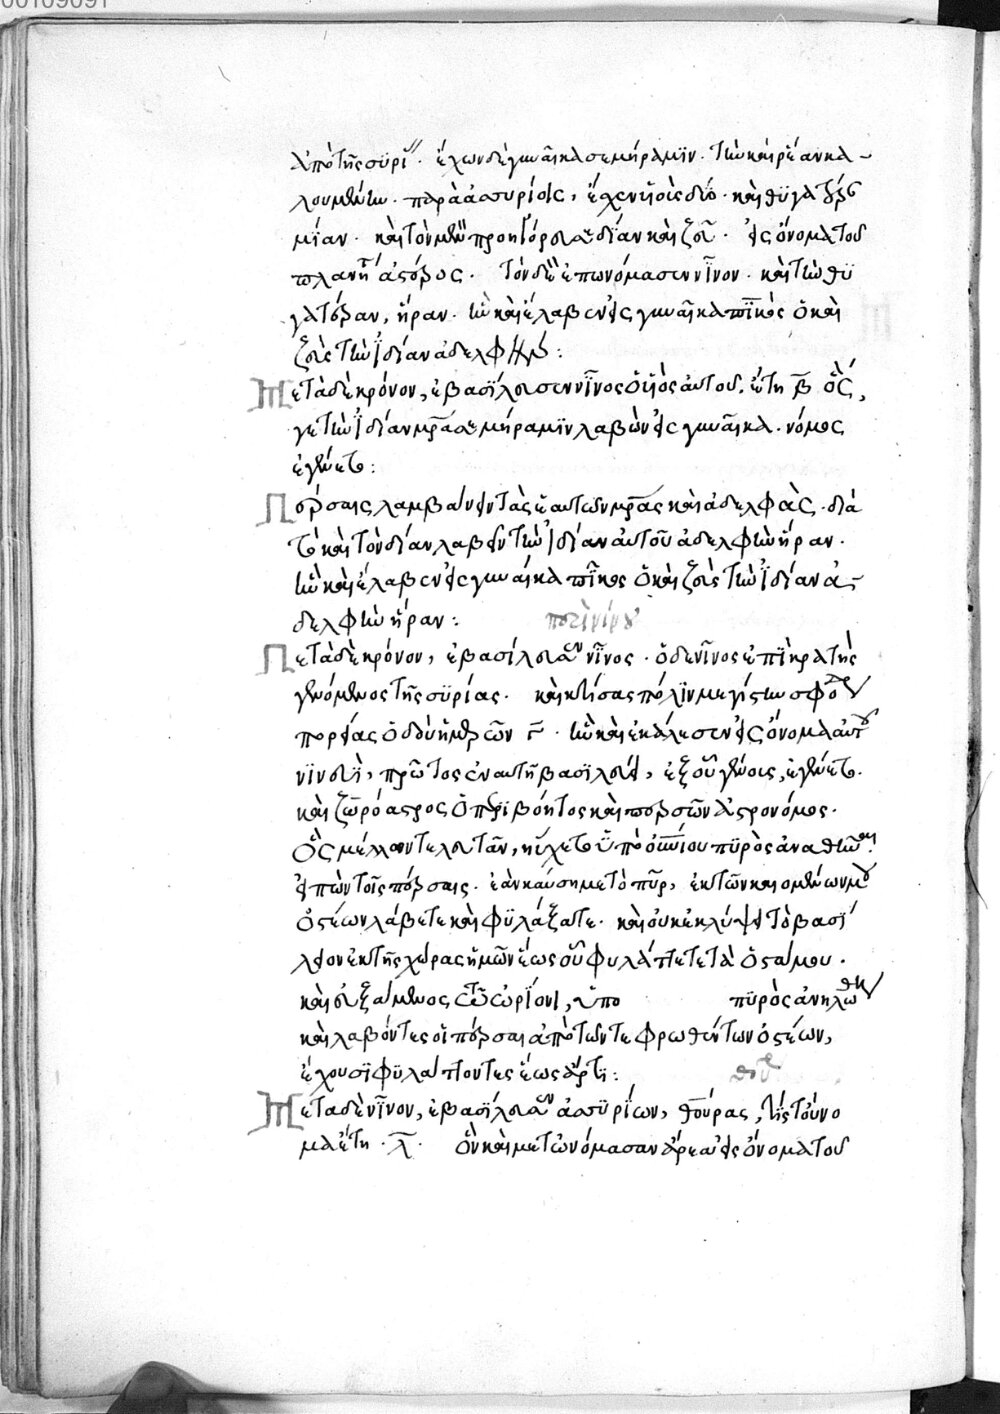 00109091
ἀπὸ τῆς συρί · ἔχων δὲ γυναῖκα σεμήραμϊν · τὴν καὶ ῥέαν κα-
λουμένην · παρὰ ἀσυρίοις, ἔσχεν υἱοὺς δύο · καὶ θϋγατέρα
μίαν · καὶ τὸν μὲν προσηγόρευσε δίαν καὶ ζευ · εἰς ὄνομα τοῦ
πλανήτ ἀστέρος · τὸν δὲ ἐπωνόμασεν νῖνον · καὶ τὴν θϋ
γατέραν, ἥραν · ἣν καὶ ἔλαβεν εἰς γυναῖκα πῖκος ὁ καὶ
ζεὺς τὴν ϊδίαν ἀδελφήν :
Μετὰ δὲ κρόνον, ἐβασίλευσεν νῖνος ὁ υἱὸς αὐτοῦ, ἔτη ν̅β̅ ὅς,
γε τὴν ϊδίαν μρ̅α σεμήραμϊν λαβὼν εἰς γυναῖκα · νόμος
ἐγένετο :
Πέρσαις λαμβάνειν τὰς ἑαυτῶν μρ̅ας καὶ ἀδελφὰς · διὰ
τὸ καὶ τὸν δίαν λαβεῖν τὴν ϊδίαν αὐτοῦ ἀδελφὴν ἥραν ·
ἣν καὶ ἔλαβεν εἰς γυναίκα πῖκος ὁ καὶ ζεὺς τὴν ϊδίαν ἀ-
δελφὴν ἥραν :
Μετὰ δὲ κρόνον, ἐβασίλευσεν νῖνος · ὁ δε νῖνος ἐπϊκρατὴς
γενόμενος τῆς συρίας · καὶ κτίσας πόλϊν μεγίστην σφόδρ
πορείας ὁδοῦ ἡμερῶν γ̅ · ἣν καὶ ἐκάλεσεν εἰς ὄνομα αὐτοῦ
νϊνευῒ, πρῶτος ἐν αυτῆ βασϊλεύει, ἐξ οὗ γένους, ἐγένετο
καὶ ζωρόαστρος ὁ περϊβόητος καὶ περσῶν ἀστρονόμος ·
Ὃς μέλλων τελευτᾶν, ηὔχετο ὑπὸ οὐνίου πϋρὸς ἀναθῶναι
εἰπὼν τοῖς πέρσαις · ἐὰν καύση με τὸ πῦρ, ἐκ τῶν καιομένων μου
ὀστέων λάβετε καὶ φϋλάξατε · καὶ οὐκ ἐκλύψει τὸ βασϊ
λειον ἐκ τῆς χώρας ἡμῶν ἕως οὗ φυλάττετε τὰ ὀστᾶ μου ·
καὶ εὐξάμενος τῶ ὠρϊονι, ὑπο πϋρὸς ἀνηλώθη
καὶ λαβόντες οἱ πέρσαι ἀπὸ τῶν τεφρωθέντων ὀστέων,
ἔχουσϊ φϋλάττοντες ἕως ἄρτϊ :
Μετα δὲ νῖνον, ἐβασϊλευσεν ἀσσϋρίων, θούρας, τὸ ὄνο
μα ἔτη · λ̅ · ὃν καὶ μετωνόμασαν ἄρεα εἰς ὄνομα τοῦ